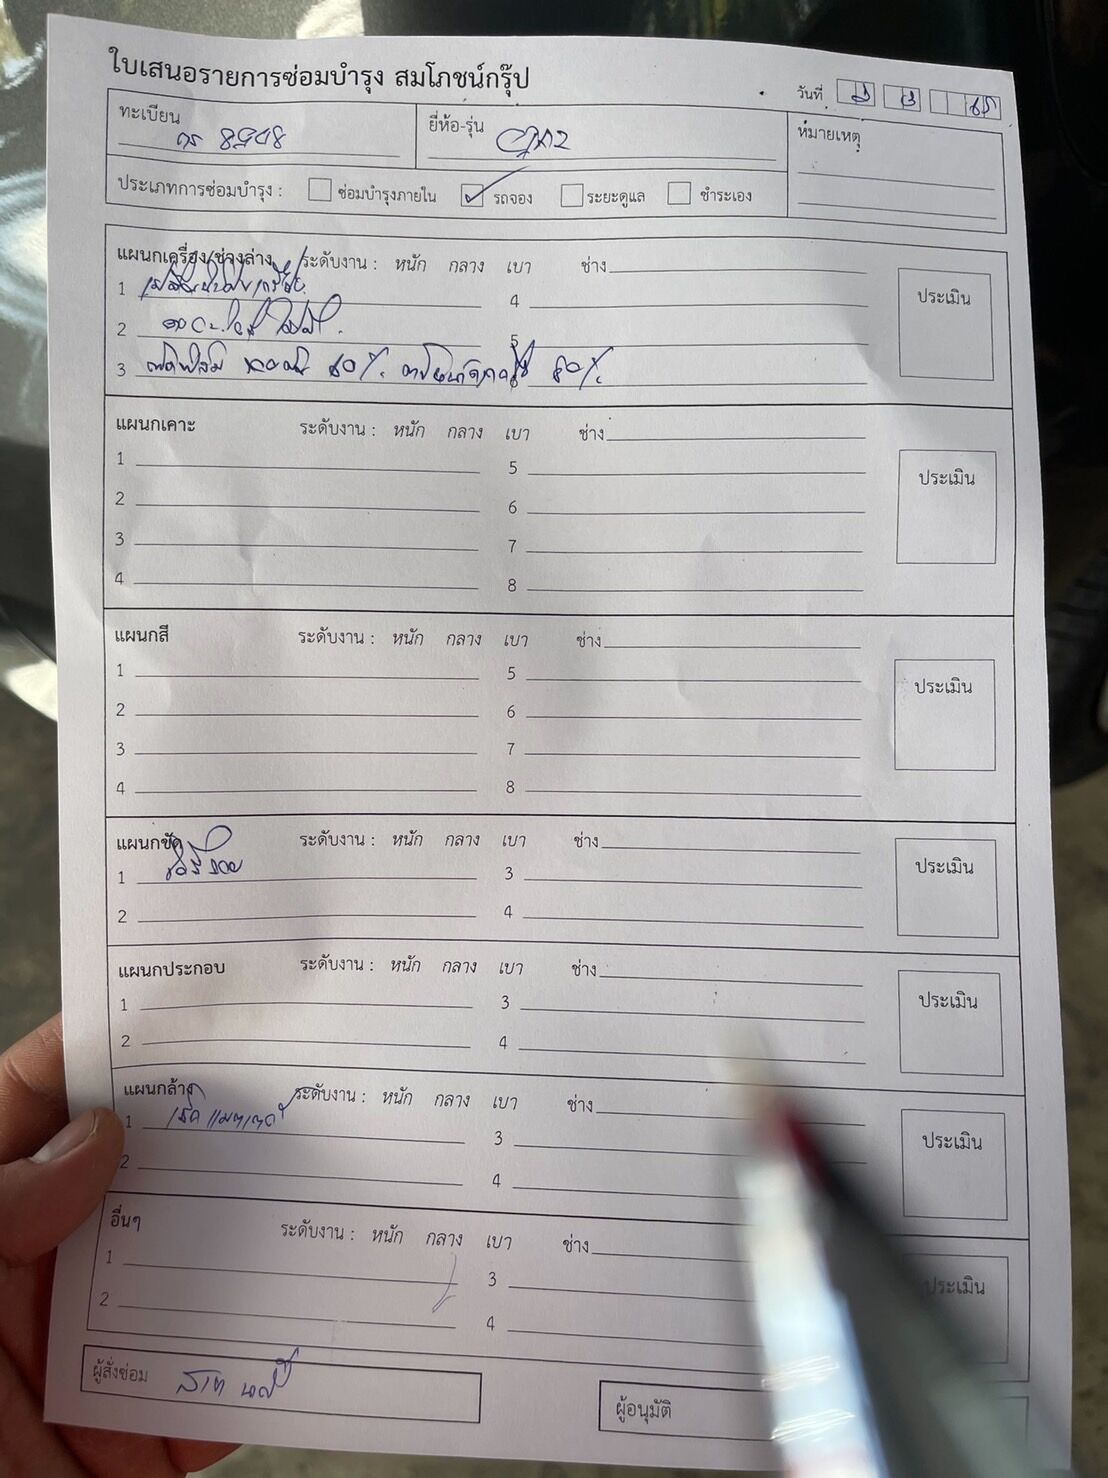 ใบเสนอรายการซ่อมบำรุง สมโภชน์กรุ๊ป
วันที่ 65
ทะเบียน
ยี่ห้อ-รุ่น
หมายเหตุ
ประเภทการซ่อมบำรุง : ซ่อมบำรุงภายใน รถจอง ระยะดูแล ชำระเอง
แผนกเครื่อง/ช่วงล่าง ระดับงาน : หนัก กลาง เบา ช่าง
ประเมิน
1 4
2 5
3 ติดฟิล์ม 60% 80%
แผนกเคาะ ระดับงาน : หนัก กลาง เบา ช่าง
ประเมิน
1 5
2 6
3 7
4 8
แผนกสี ระดับงาน : หนัก กลาง เบา ช่าง
ประเมิน
1 5
2 6
3 7
4 8
แผนกขัด ระดับงาน : หนัก กลาง เบา ช่าง
ประเมิน
1 3
2 4
แผนกประกอบ ระดับงาน : หนัก กลาง เบา ช่าง
ประเมิน
1 3
2 4
แผนกล้าง ระดับงาน : หนัก กลาง เบา ช่าง
ประเมิน
1 3
2 4
อื่นๆ ระดับงาน : หนัก กลาง เบา ช่าง
ประเมิน
1 3
2 4
ผู้สั่งซ่อม
ผู้อนุมัติ